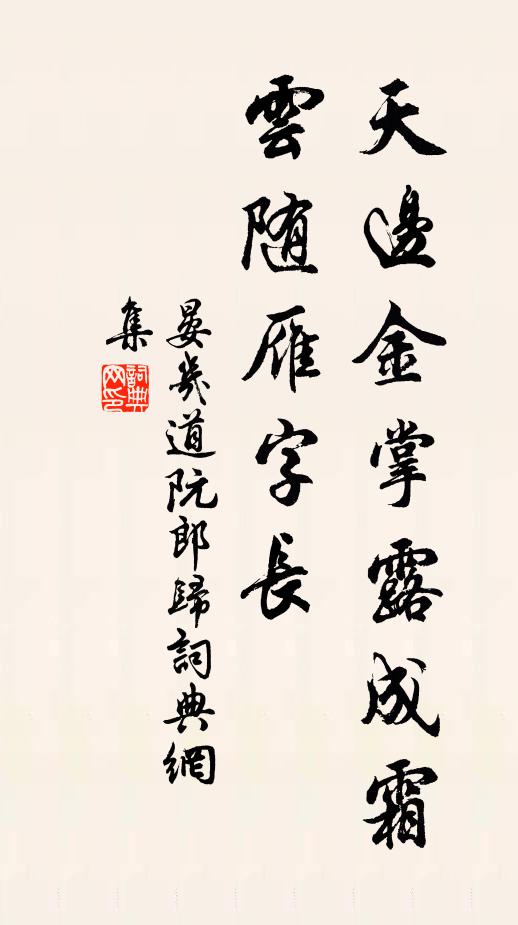 天邊金掌露成霜
雲随雁字長
晏幾道阮郎歸詞典網
集
詞典
网印